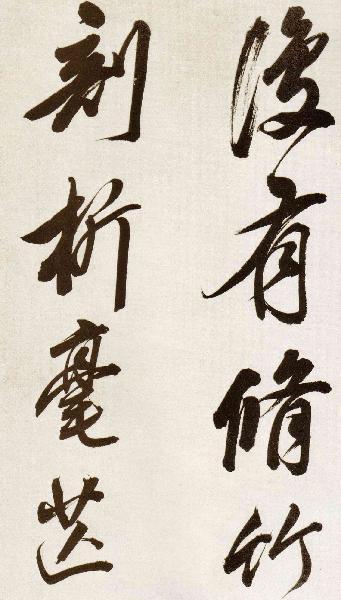 復有脩竹
剖析毫芒